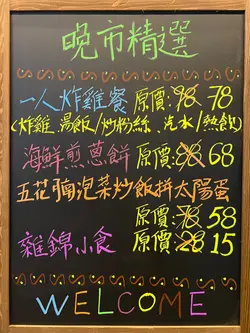 晚市精選
一人炸雞餐 原價:98 78
(炸雞、湯飯/炒粉絲、汽水/熱飲)
海鮮煎蔥餅 原價:88 68
五花腩泡菜炒飯拼太陽蛋
原價:78 58
雜錦小食 原價:28 15
WELCOME